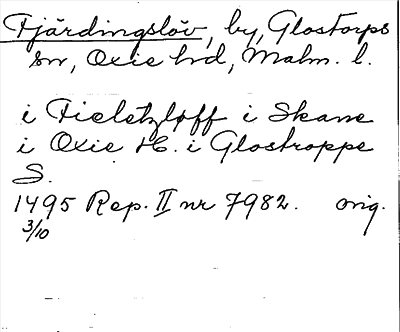 Fjärdingslöv, by, Glostorps
sn, Oxie hd, Malm. l.
i Fieletzløff i Skane
i Oxie H. i Glostroppe
S.
1495 Rep. II nr 7982. orig.
3/10